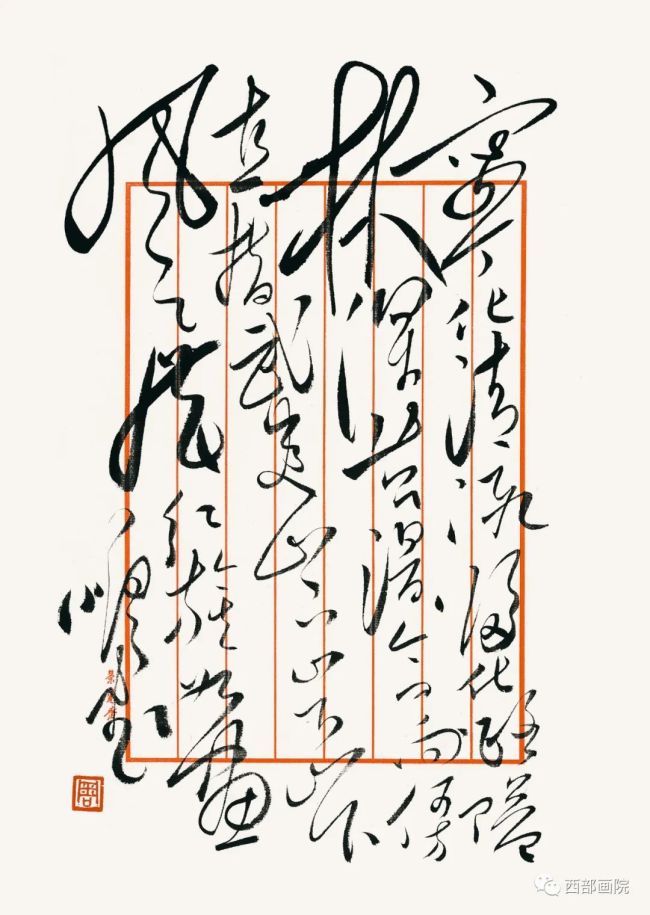 寧化清流歸化路隘
林深苔滑今日向何方
直指武夷山下山下山下
風展紅旗如畫
西部画院